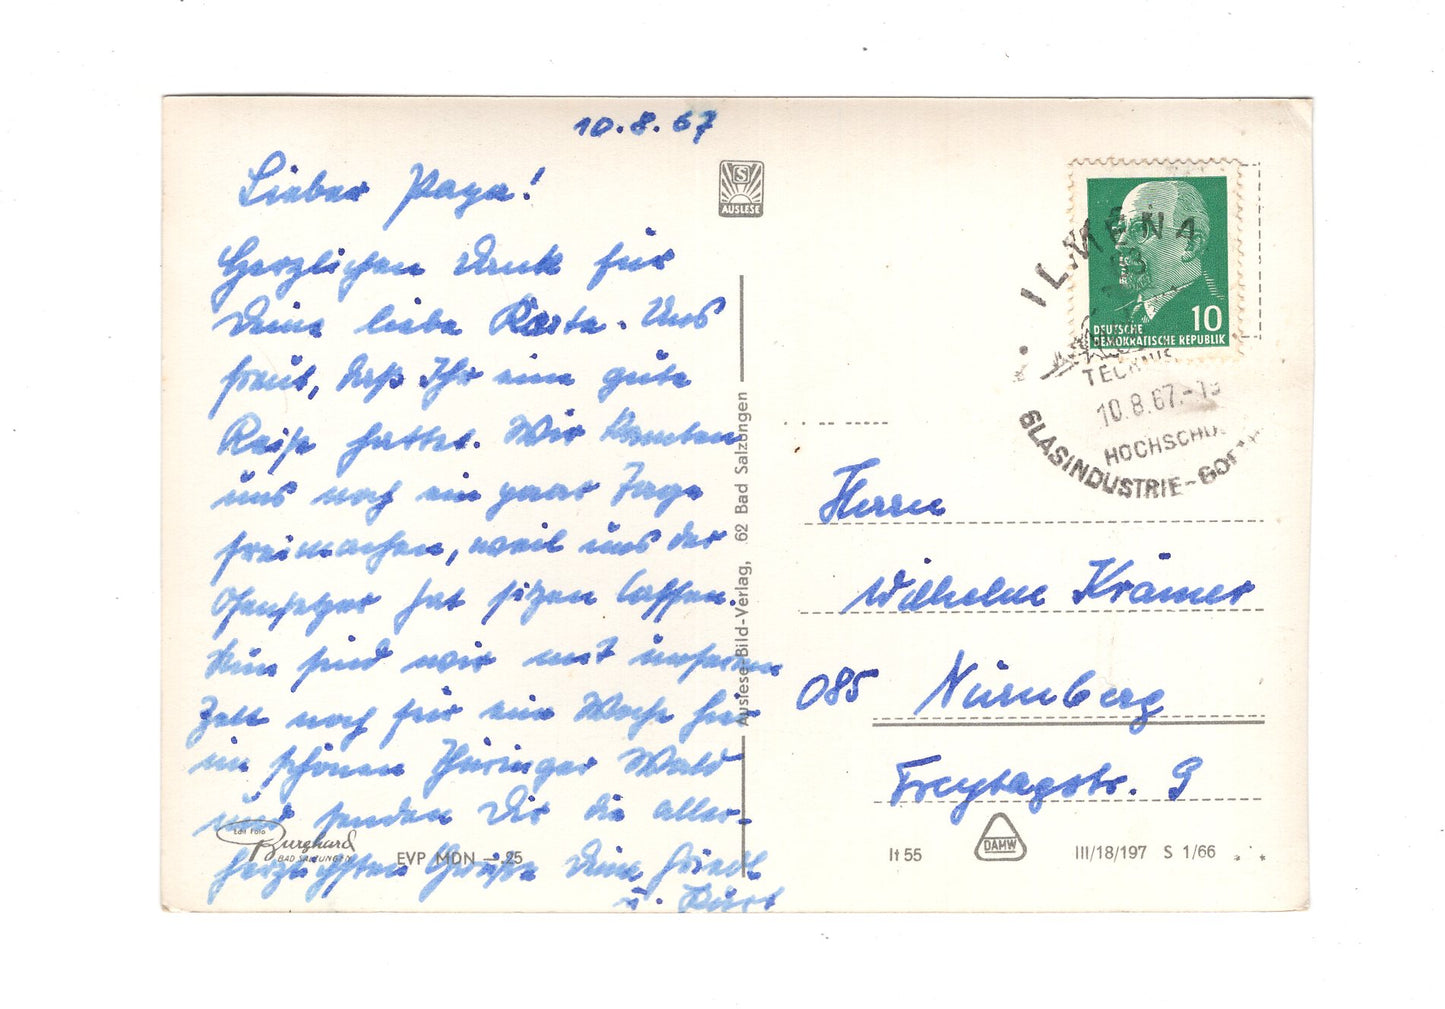 10.8.67
Lieber Papa!
Herzlichen Dank für
Deine liebe Karte. Uns
freut, daß Ihr eine gute
Reise hattet. Wir konnten
uns noch ein paar Tage
freimachen, weil uns der
Ofensetzer hat sitzen lassen.
Nun sind wir mit unserem
Zelt noch für eine Woche hier
im schönen Thüringer Wald
und senden Dir die aller-
herzlichsten Grüße Deine Friedl
u. Kurt
Echt Foto
Burghard
BAD SALZUNGEN
EVP MDN -.25
S
AUSLESE
Auslese-Bild-Verlag, 62 Bad Salzungen
10
DEUTSCHE
DEMOKRATISCHE REPUBLIK
ILMENA
63
TECHNIS
10.8.67.-1
HOCHSCHU
GLASINDUSTRIE-
Herrn
Wilhelm Krämer
085 Nürnberg
Freytagstr. 9
It 55
DAMW
III/18/197 S 1/66